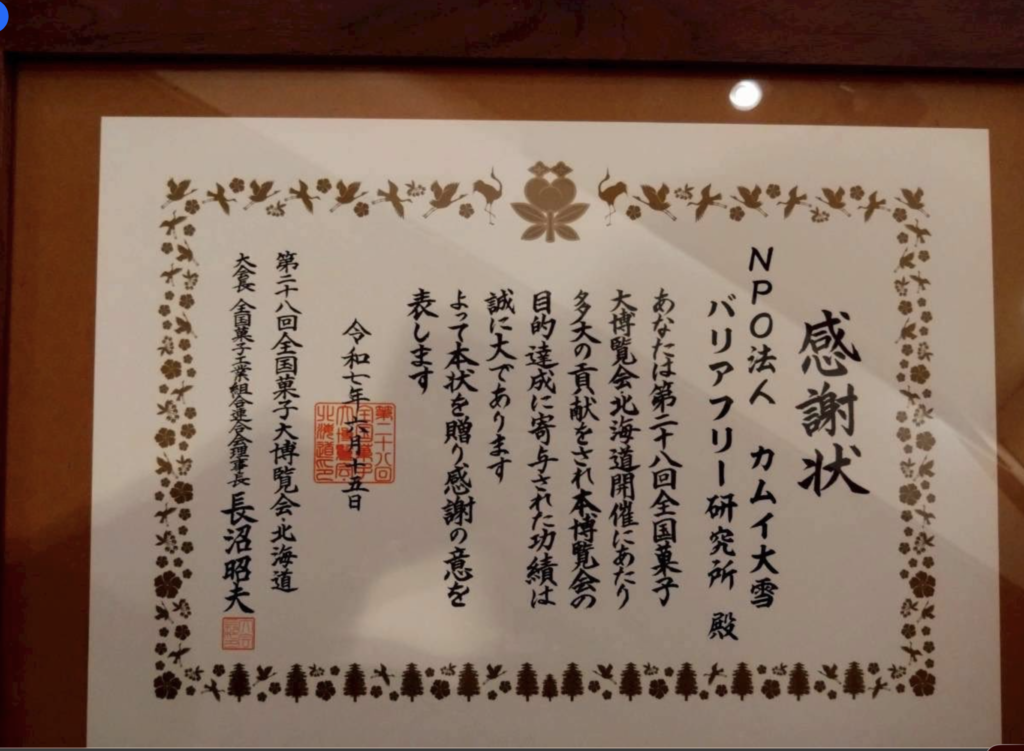 感謝状
NPO法人 カムイ大雪
バリアフリー研究所 殿
あなたは第二十八回全国菓子
大博覧会北海道開催にあたり
多大の貢献をされ本博覧会の
目的達成に寄与された功績は
誠に大であります
よって本状を贈り感謝の意を
表します
令和七年六月十五日
第二十八回全国菓子大博覧会・北海道
大会長 全国菓子工業組合連合会理事長 長沼昭夫
第二十八回
全国菓子
大博覧会
北海道印